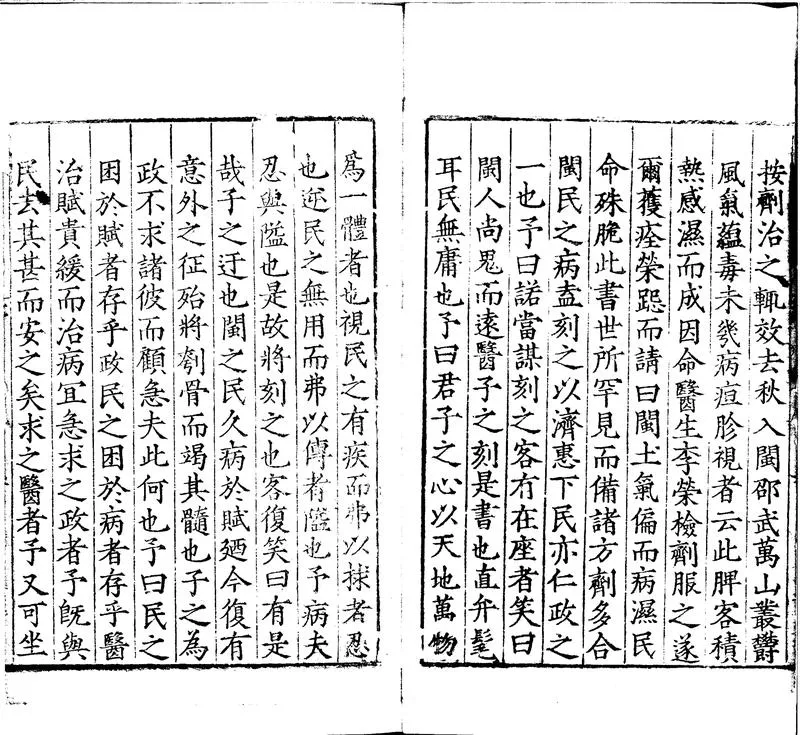 按劑治之輒效去秋入閩邵武萬山叢欝
風氣蘊毒未幾病痘胗視者云此脾客積
熱感濕而成因命醫生李榮檢劑服之遂
爾獲痊榮跽而請曰閩土氣偏而病濕民
命殊脆此書世所罕見而備諸方劑多合
閩民之病盍刻之以濟惠下民亦仁政之
一也予曰諾當謀刻之客有在座者笑曰
閩人尚鬼而遠醫子之刻是書也直弁髦
耳民無庸也予曰君子之心以天地萬物
為一體者也視民之有疾而弗以捄者忍
也逆民之無用而弗以傳者隘也予病夫
忍與隘也是故將刻之也客復笑曰有是
哉子之迂也閩之民久病於賦廼今復有
意外之征殆將刳骨而竭其髓也子之為
政不求諸彼而顧急夫此何也予曰民之
困於賦者存乎政民之困於病者存乎醫
治賦貴緩而治病冝急求之政者予旣與
民去其甚而安之矣求之醫者予又可坐